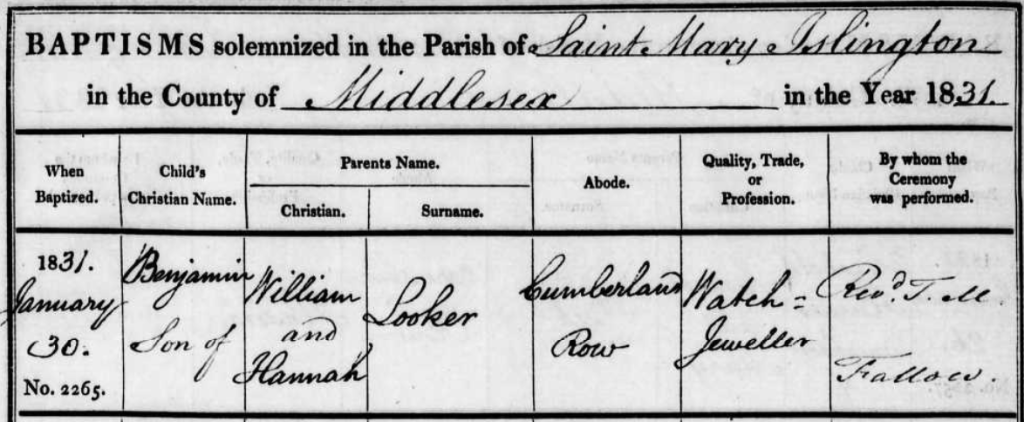 BAPTISMS solemnized in the Parish of Saint Mary Islington
in the County of Middlesex in the Year 1831.
When Baptized.
Child's Christian Name.
Parents Name.
Christian.
Surname.
Abode.
Quality, Trade, or Profession.
By whom the Ceremony was performed.
1831.
January
30.
No. 2265.
Benjamin
Son of
William
and
Hannah
Looker
Cumberland
Row
Watch=
Jeweller
Revd. T. M
Fallow.